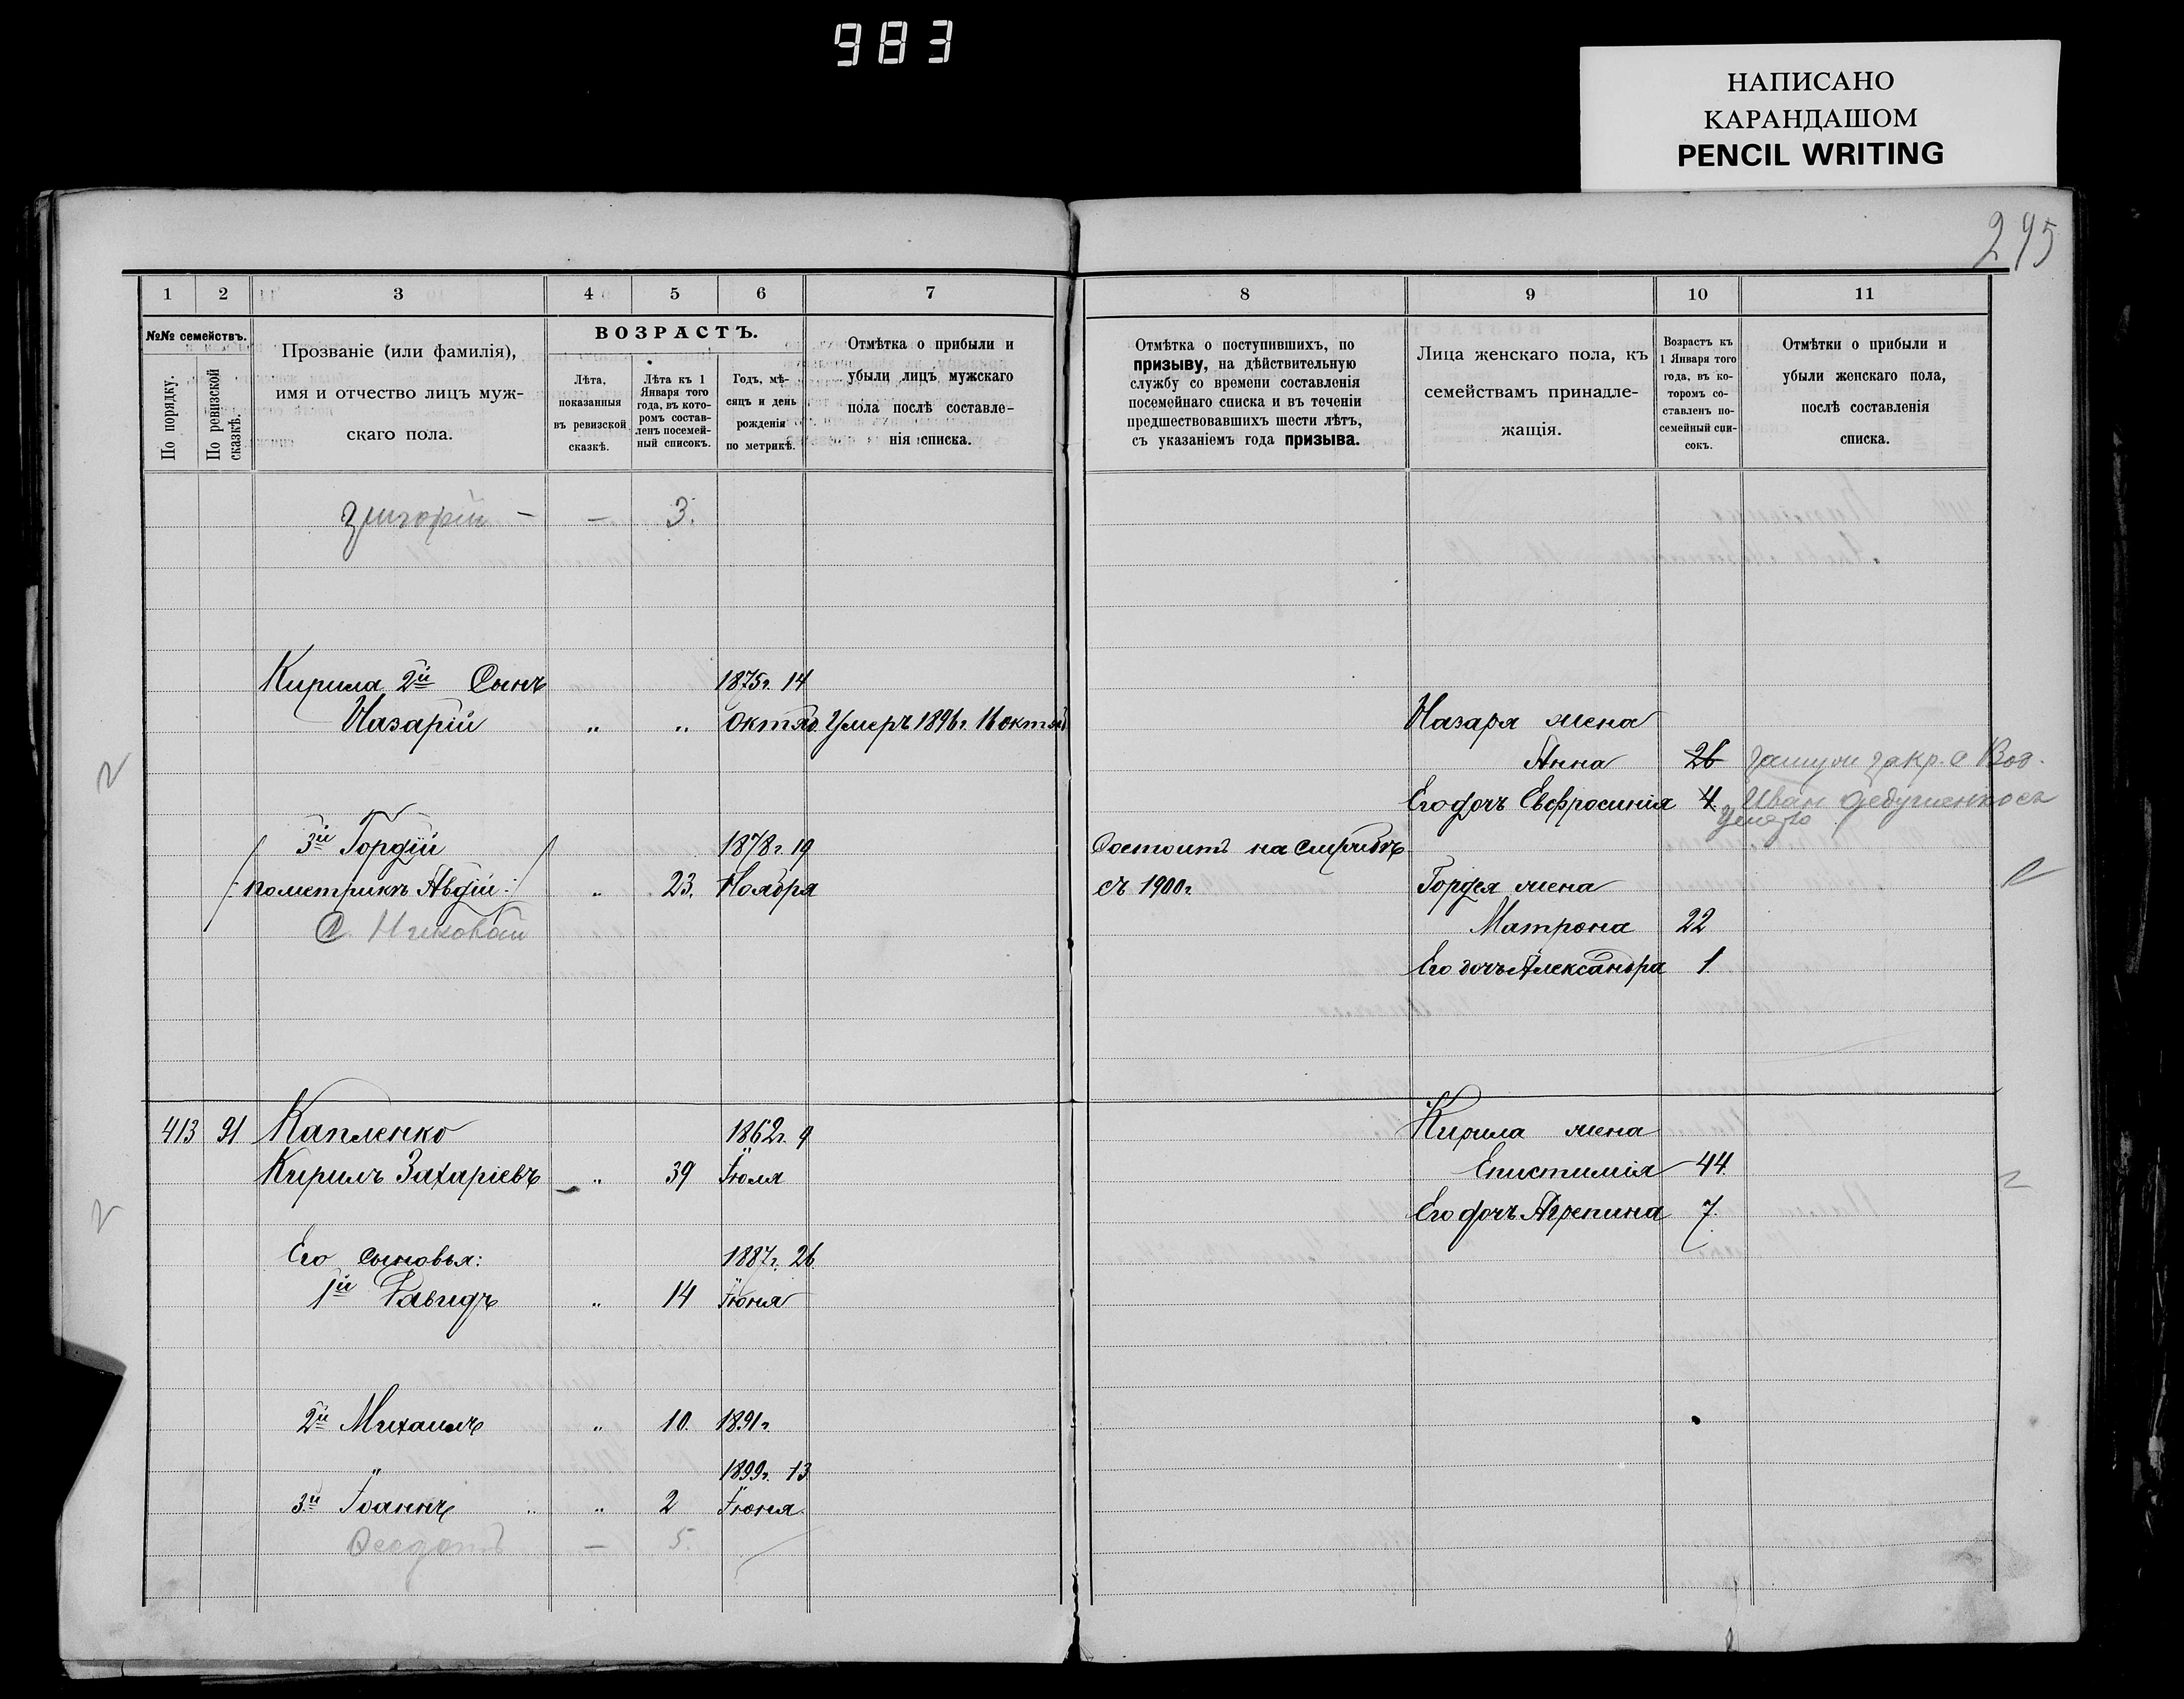 983
НАПИСАНО
КАРАНДАШОМ
PENCIL WRITING
295
1 2 3 4 5 6 7
№№ семействъ.
По порядку.
По ревизской сказкѣ.
Прозваніе (или фамилія),
имя и отчество лицъ муж-
скаго пола.
ВОЗРАСТЪ.
Лѣта,
показанныя
въ ревизской
сказкѣ.
Лѣта къ 1
Января того
года, въ кото-
ромъ состав-
ленъ посемей-
ный списокъ.
Годъ, мѣ-
сяцъ и день
рожденія
по метрикѣ.
Отмѣтка о прибыли и
убыли лицъ мужскаго
пола послѣ составле-
нія списка.
Григорій — — 3.
Кирила 2й Сынъ 1875г. 14
Назарій „ „ Октяб. Умеръ 1896г. 16 октяб
3й Гордѣй 1878г. 19
/: по метрикѣ Авдій :/ „ 23. Ноября
С. Николай
413 91 Капленко 1862г. 9
Кирилъ Захаріевъ „ 39 Іюля
Его сыновья: 1887г. 26
1й Давидъ „ 14 Іюня
2й Михаилъ „ 10. 1891г.
1899г. 13
3й Іоаннъ „ 2 Іюня
Ѳеодотъ — 5.
8 9 10 11
Отмѣтка о поступившихъ, по
призыву, на дѣйствительную
службу со времени составленія
посемейнаго списка и въ теченіи
предшествовавшихъ шести лѣтъ,
съ указаніемъ года призыва.
Лица женскаго пола, къ
семействамъ принадле-
жащія.
Возрастъ къ
1 Января того
года, въ ко-
торомъ со-
ставленъ по-
семейный спи-
сокъ.
Отмѣтки о прибыли и
убыли женскаго пола,
послѣ составленія
списка.
Назара жена
Анна 26 замужи за кр. с Воз.
Его дочь Евфросинія 4 Иван
Состоитъ на службѣ
съ 1900г. Гордея жена
Матрона 22
Его дочь Александра 1.
Кирила жена
Епистимія 44.
Его дочь Агрепина 7.